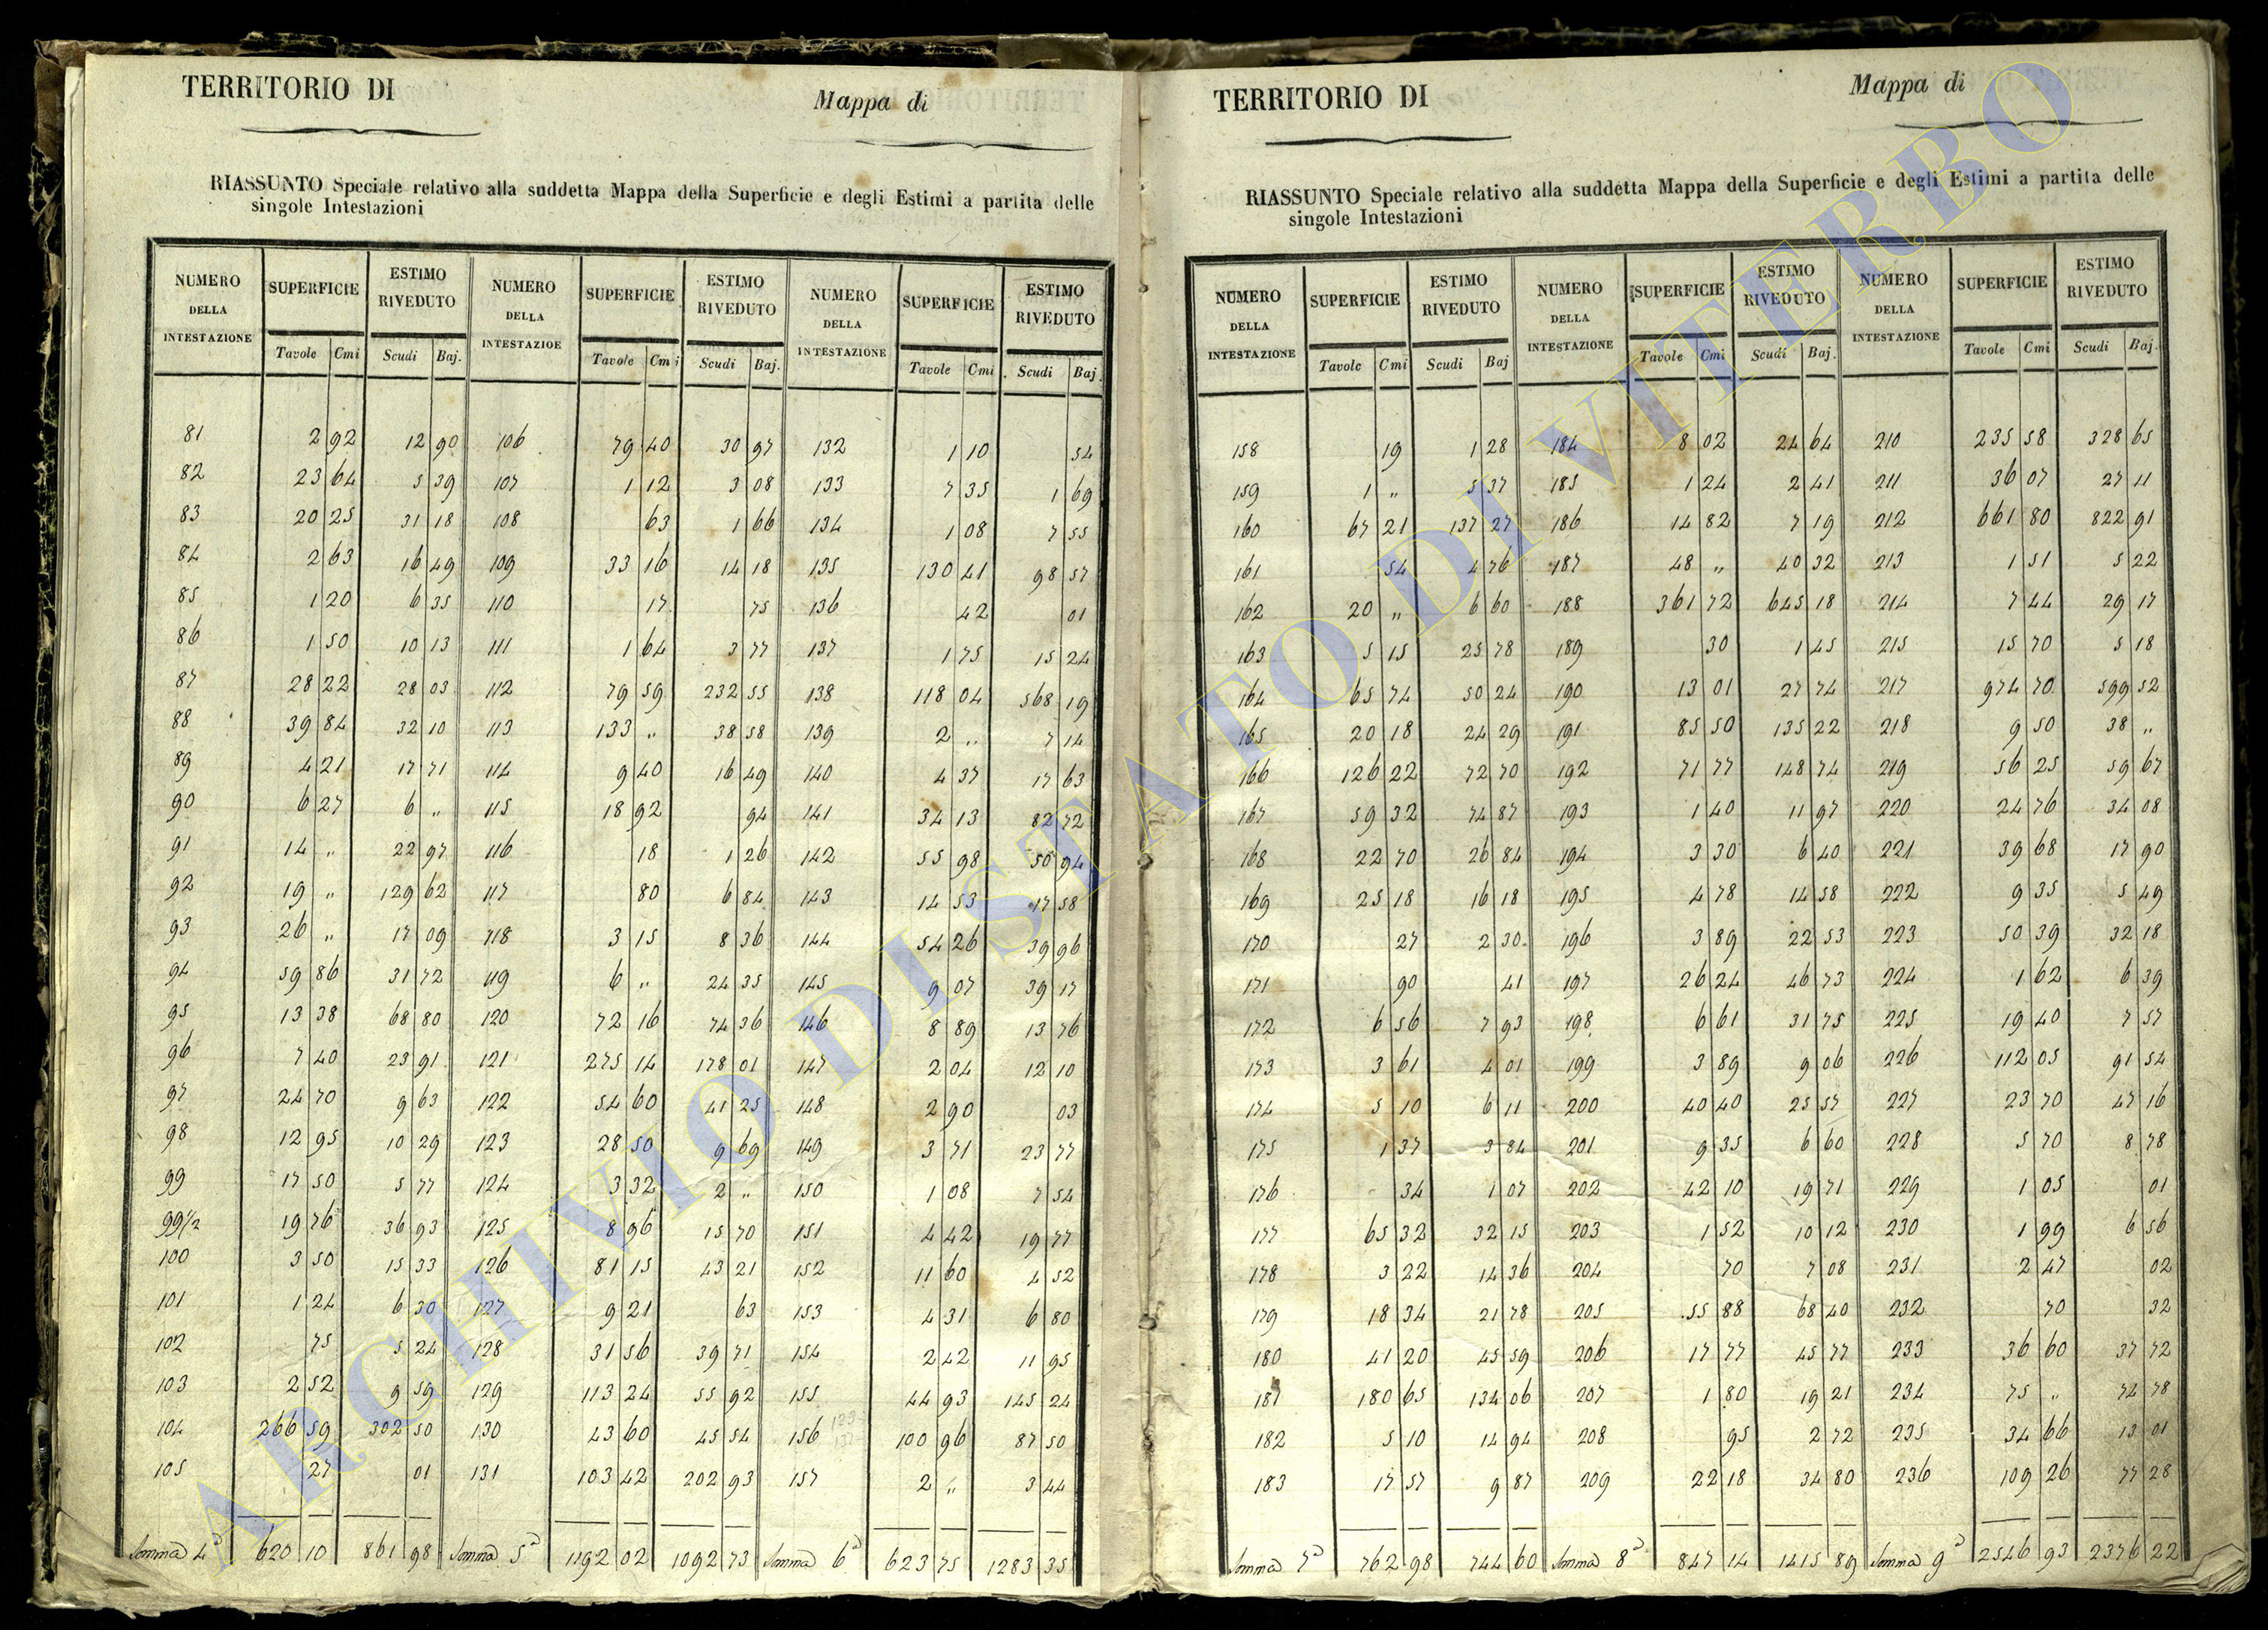 TERRITORIO DI
Mappa di
RIASSUNTO Speciale relativo alla suddetta Mappa della Superficie e degli Estimi a partita delle
singole Intestazioni
NUMERO DELLA INTESTAZIONE SUPERFICIE ESTIMO RIVEDUTO NUMERO DELLA INTESTAZIOE SUPERFICIE ESTIMO RIVEDUTO NUMERO DELLA INTESTAZIONE SUPERFICIE ESTIMO RIVEDUTO
Tavole Cmi Scudi Baj. Tavole Cmi Scudi Baj. Tavole Cmi Scudi Baj.
81 2 92 12 90 106 79 40 30 97 132 1 10 54
82 23 64 5 39 107 1 12 3 08 133 7 35 1 69
83 20 25 31 18 108 63 1 66 134 1 08 7 55
84 2 63 16 49 109 33 16 14 18 135 130 41 98 57
85 1 20 6 35 110 17 75 136 42 01
86 1 50 10 13 111 1 64 3 77 137 1 75 15 24
87 28 22 28 03 112 79 59 232 55 138 118 04 568 19
88 39 84 32 10 113 133 „ 38 58 139 2 „ 7 14
89 4 21 17 71 114 9 40 16 49 140 4 37 17 63
90 6 27 6 „ 115 18 92 94 141 34 13 82 72
91 14 „ 22 97 116 18 1 26 142 55 98 50 94
92 19 „ 129 62 117 80 6 84 143 14 53 17 58
93 26 „ 17 09 118 3 15 8 36 144 54 26 39 96
94 59 86 31 72 119 6 „ 24 35 145 9 07 39 17
95 13 38 68 80 120 72 16 74 36 146 8 89 13 76
96 7 40 23 91 121 275 14 178 01 147 2 04 12 10
97 24 70 9 63 122 54 60 41 25 148 2 90 03
98 12 95 10 29 123 28 50 9 69 149 3 71 23 77
99 17 50 5 77 124 3 32 2 „ 150 1 08 7 54
99 1/2 19 76 36 93 125 8 96 15 70 151 4 42 19 77
100 3 50 15 33 126 81 15 43 21 152 11 60 4 52
101 1 24 6 30 127 9 21 63 153 4 31 6 80
102 75 5 24 128 31 56 39 71 154 2 42 11 95
103 2 52 9 59 129 113 24 55 92 155 44 93 145 24
104 266 59 302 50 130 43 60 45 54 156 100 96 87 50
105 27 01 131 103 42 202 93 157 2 „ 3 44
Somma 4a 620 10 861 98 Somma 5a 1192 02 1092 73 Somma 6a 623 75 1283 35
TERRITORIO DI
Mappa di
RIASSUNTO Speciale relativo alla suddetta Mappa della Superficie e degli Estimi a partita delle
singole Intestazioni
NUMERO DELLA INTESTAZIONE SUPERFICIE ESTIMO RIVEDUTO NUMERO DELLA INTESTAZIONE SUPERFICIE ESTIMO RIVEDUTO NUMERO DELLA INTESTAZIONE SUPERFICIE ESTIMO RIVEDUTO
Tavole Cmi Scudi Baj Tavole Cmi Scudi Baj. Tavole Cmi Scudi Baj.
158 19 1 28 184 8 02 24 64 210 235 58 328 65
159 1 „ 5 37 185 1 24 2 41 211 36 07 27 11
160 67 21 137 27 186 14 82 7 19 212 661 80 822 91
161 54 4 76 187 48 „ 40 32 213 1 51 5 22
162 20 „ 6 60 188 361 72 645 18 214 7 44 29 17
163 5 15 25 78 189 30 1 45 215 15 70 5 18
164 65 74 50 24 190 13 01 27 74 217 974 70 599 52
165 20 18 24 29 191 85 50 135 22 218 9 50 38 „
166 126 22 72 70 192 71 77 148 74 219 56 25 59 67
167 59 32 74 87 193 1 40 11 97 220 24 76 34 08
168 22 70 26 84 194 3 30 6 40 221 39 68 17 90
169 25 18 16 18 195 4 78 14 58 222 9 35 5 49
170 27 2 30 196 3 89 22 53 223 50 39 32 18
171 90 41 197 26 24 46 73 224 1 62 6 39
172 6 56 7 93 198 6 61 31 75 225 19 40 7 57
173 3 61 4 01 199 3 89 9 06 226 112 05 91 54
174 5 10 6 11 200 40 40 25 57 227 23 70 47 16
175 1 37 3 84 201 9 35 6 60 228 5 70 8 78
176 34 1 07 202 42 10 19 71 229 1 05 01
177 65 32 32 15 203 1 52 10 12 230 1 99 6 56
178 3 22 14 36 204 70 7 08 231 2 47 02
179 18 34 21 78 205 55 88 68 40 232 70 32
180 41 20 45 59 206 17 77 45 77 233 36 60 37 72
181 180 65 134 06 207 1 80 19 21 234 75 „ 74 78
182 5 10 14 94 208 95 2 72 235 34 66 13 01
183 17 57 9 87 209 22 18 34 80 236 109 26 77 28
Somma 7a 762 98 744 60 Somma 8a 847 14 1415 89 Somma 9a 2546 93 2376 22
ARCHIVIO DI STATO DI VITERBO